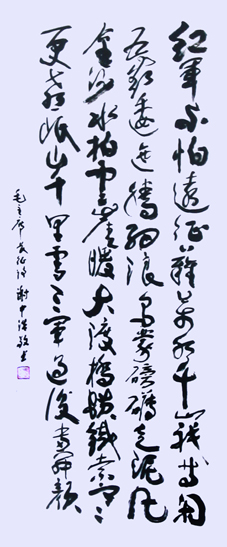 紅軍不怕遠征難萬水千山祇等閑
五嶺逶迤騰細浪烏蒙磅礴走泥丸
金沙水拍雲崖暖大渡橋橫鐵索寒
更喜岷山千里雪三軍過後盡開顏
毛主席長征詩 謝中浩敬書